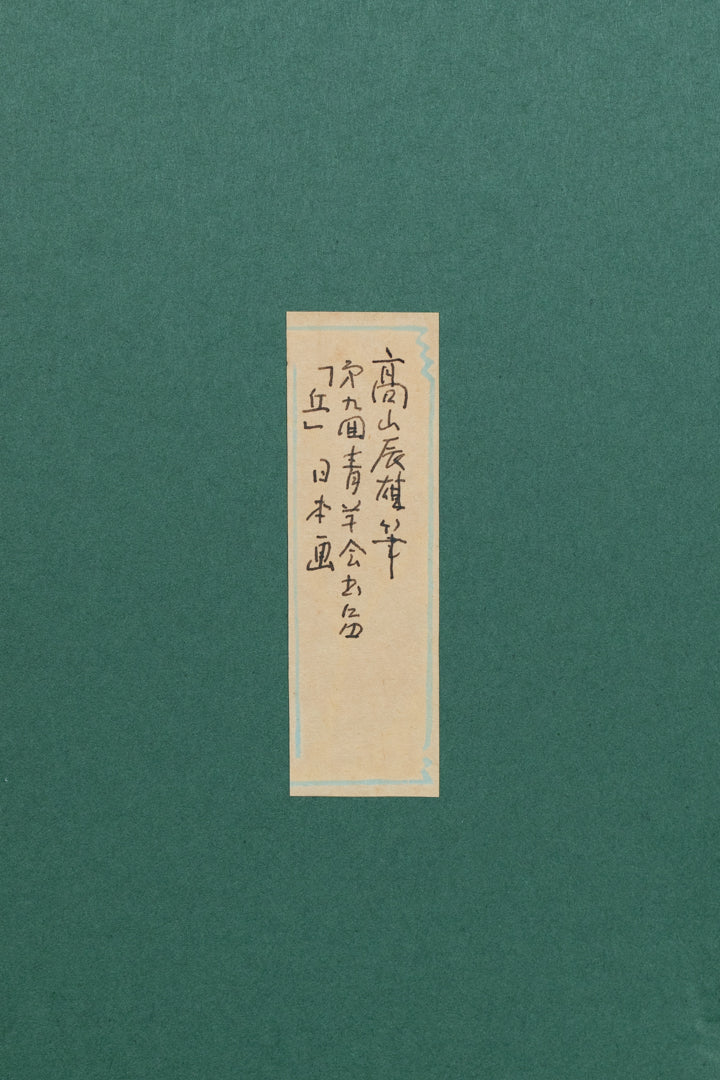 髙山辰雄筆
第九回青羊会出品
「丘」 日本画